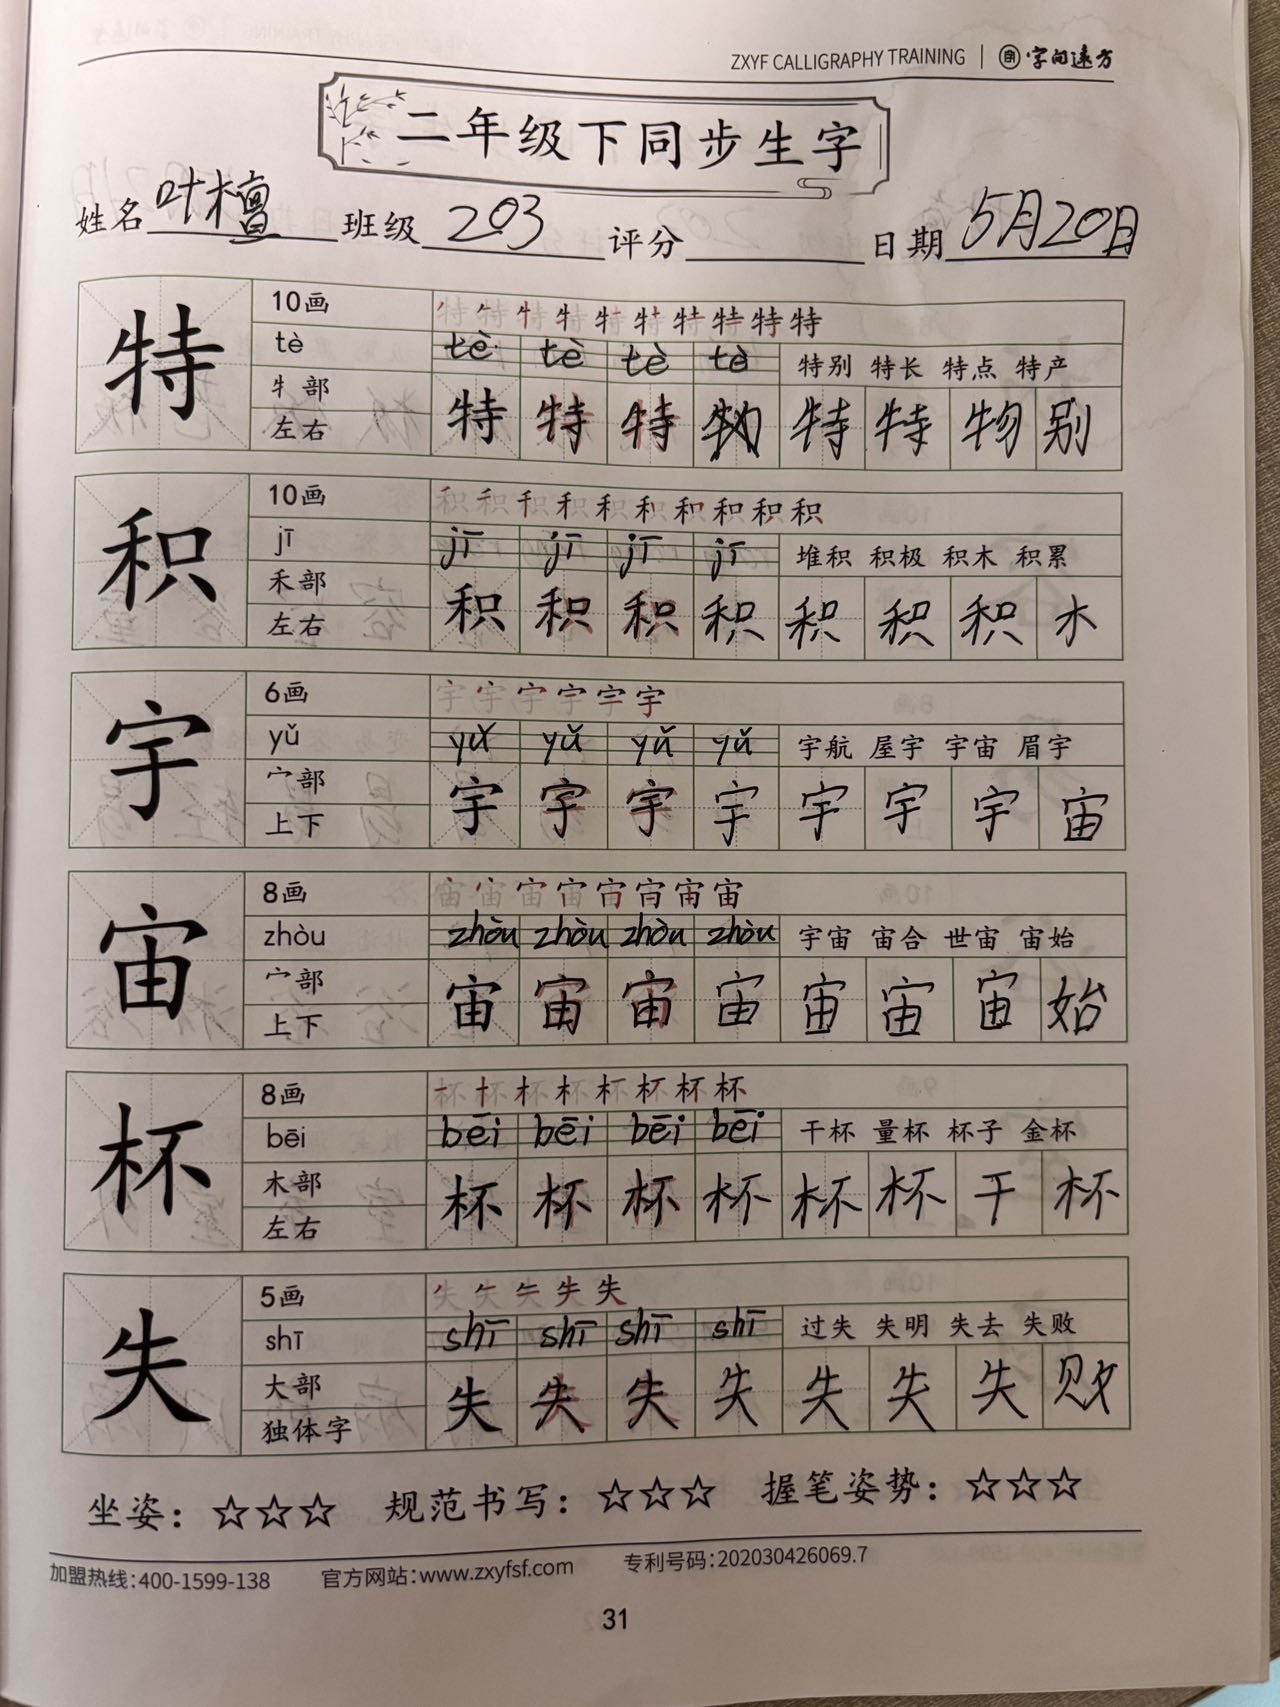 ZXYF CALLIGRAPHY TRAINING | 字间远方
二年级下同步生字
姓名 叶檀 班级 203 评分 日期 5月20日
特
10画 特 特 特 特 特 特 特 特 特 特
tè tè tè tè tè 特别 特长 特点 特产
牜部
左右
特 特 特 物 特 特 物 别
积
10画 积 积 积 积 积 积 积 积 积 积
jī jī jī jī jī 堆积 积极 积木 积累
禾部
左右
积 积 积 积 积 积 积 木
宇
6画 宇 宇 宇 宇 宇 宇
yǔ yǔ yǔ yǔ yǔ 宇航 屋宇 宇宙 眉宇
宀部
上下
宇 宇 宇 宇 宇 宇 宇 宙
宙
8画 宙 宙 宙 宙 宙 宙 宙 宙
zhòu zhòu zhòu zhòu zhòu 宇宙 宙合 世宙 宙始
宀部
上下
宙 宙 宙 宙 宙 宙 宙 始
杯
8画 杯 杯 杯 杯 杯 杯 杯 杯
bēi bēi bēi bēi bēi 干杯 量杯 杯子 金杯
木部
左右
杯 杯 杯 杯 杯 杯 干 杯
失
5画 失 失 失 失 失
shī shī shī shī shī 过失 失明 失去 失败
大部
独体字
失 失 失 失 失 失 失 败
坐姿：☆☆☆ 规范书写：☆☆☆ 握笔姿势：☆☆☆
加盟热线:400-1599-138 官方网站:www.zxyfsf.com 专利号码:202030426069.7
31